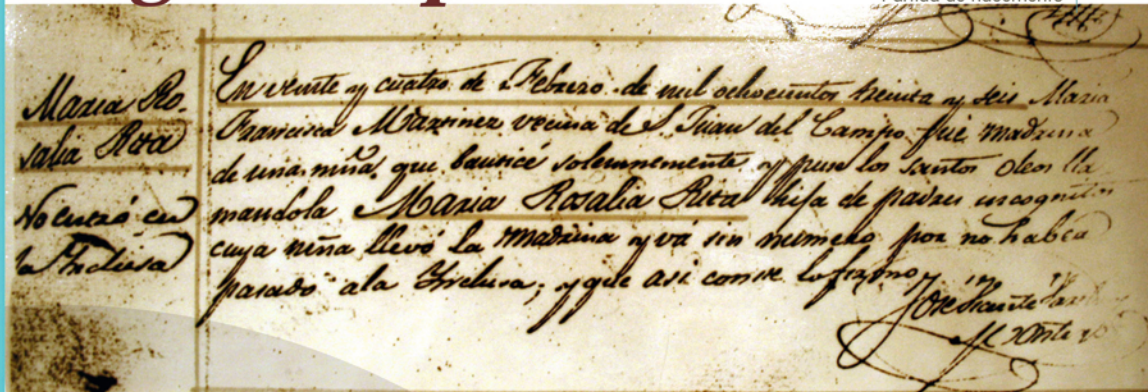 Partida de nacemento
Maria Ro-
salia Rita
No entró en
la Inclusa
En veinte y cuatro de Febrero de mil ochocientos treinta y seis Maria
Francisca Martinez vecina de S. Juan del Campo fué madrina
de una niña que bauticé solemnemente y puse los santos oleos lla
mandola Maria Rosalia Rita hija de padres incognitos
cuya niña llevó la madrina y vá sin numero por no haber
pasado a la Inclusa; y que asi conste lo firmo
José Vicente